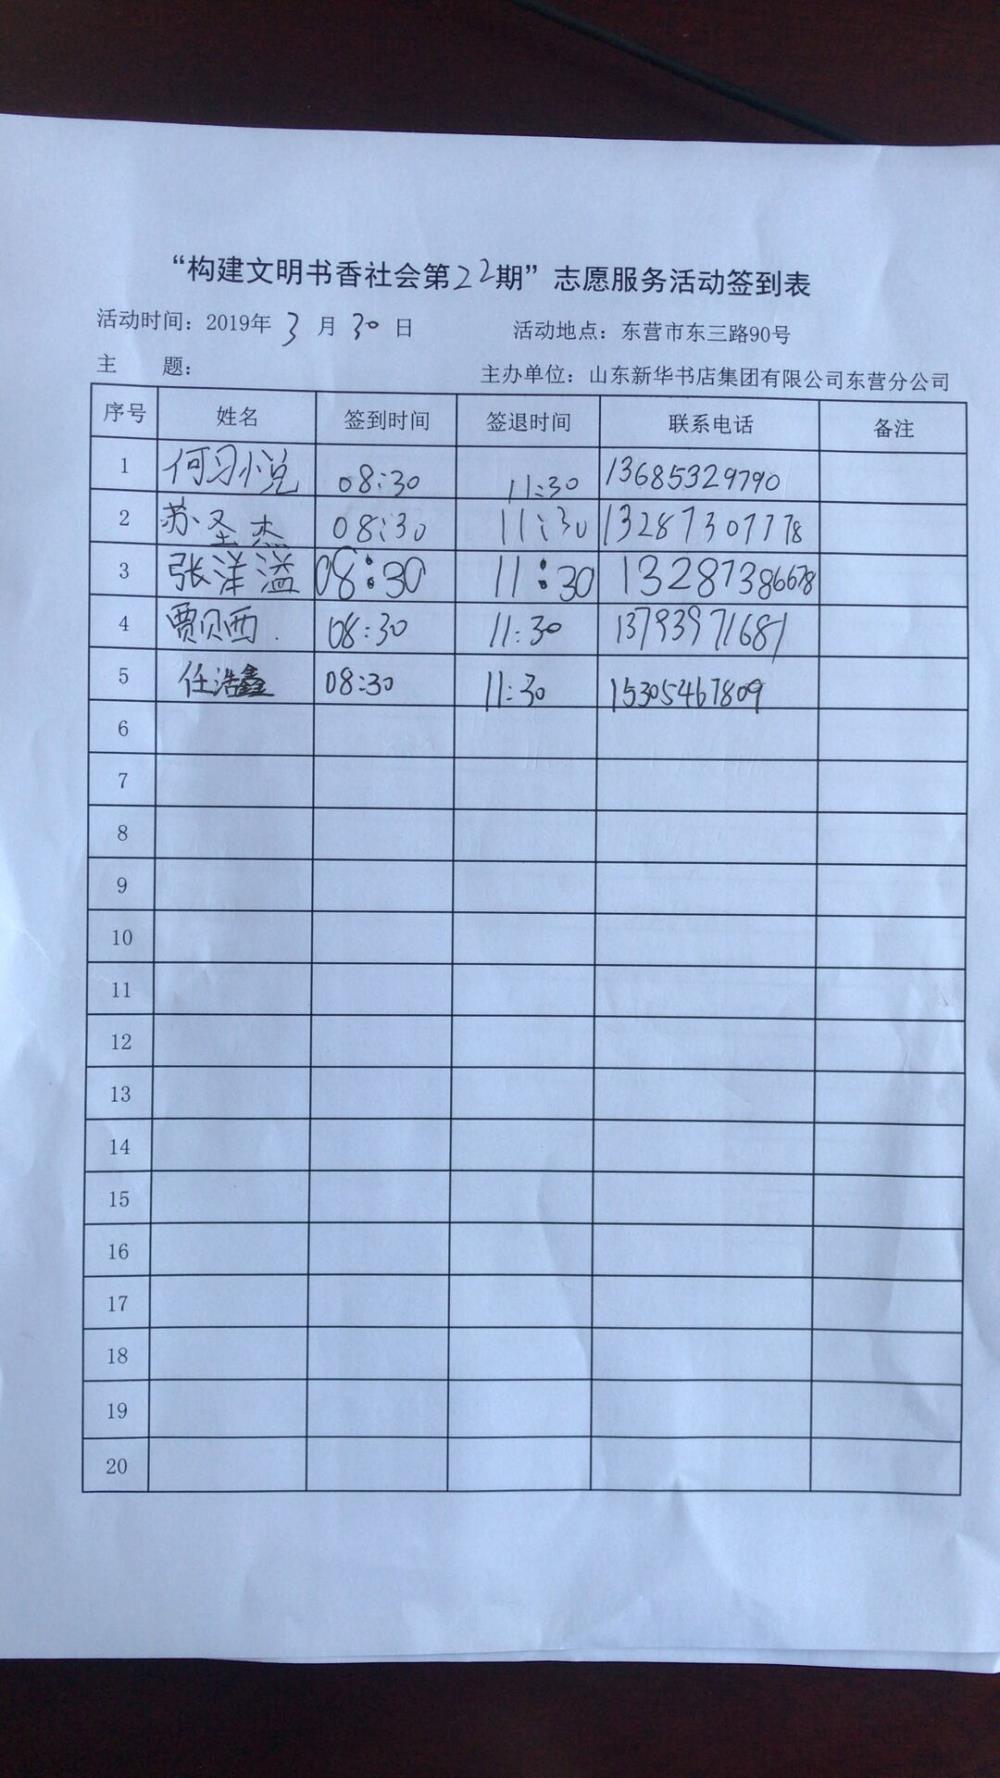 “构建文明书香社会第22期”志愿服务活动签到表
活动时间：2019年 3 月 30 日 活动地点：东营市东三路90号
主 题： 主办单位：山东新华书店集团有限公司东营分公司
序号 姓名 签到时间 签退时间 联系电话 备注
1 何习悦 08:30 11:30 13685329790
2 苏圣杰 08:30 11:30 13287307778
3 张洋溢 08:30 11:30 13287386678
4 贾贝西 08:30 11:30 13793971681
5 任浩鑫 08:30 11:30 15305467809
6
7
8
9
10
11
12
13
14
15
16
17
18
19
20